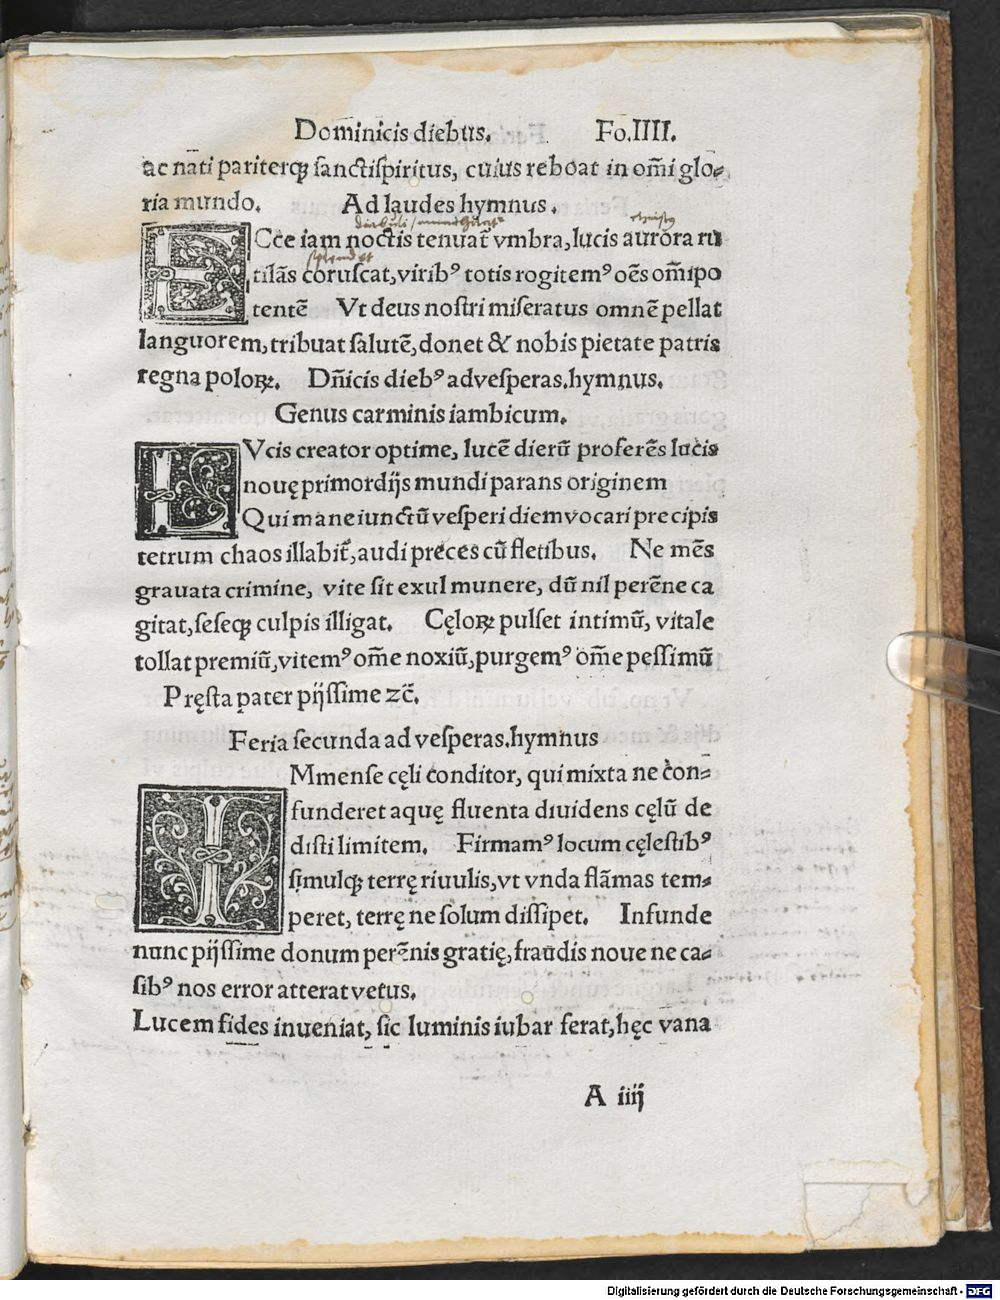 Dominicis diebus. Fo.IIII.
ac nati pariterqꝫ sanctispiritus, cuius reboat in om̃i glo⸗
ria mundo. Ad laudes hymnus.
ECce iam noctis tenuat᷑ vmbra, lucis aurora ru
splendet
tilãs coruscat, viribꝰ totis rogitemꝰ oẽs om̃ipo
tentẽ Vt deus nostri miseratus omnẽ pellat
languorem, tribuat salutẽ, donet & nobis pietate patris
regna poloꝝ. Dñicis diebꝰ ad vesperas. hymnus.
Genus carminis iambicum.
LVcis creator optime, lucẽ dierũ proferẽs lucis
nouę primordijs mundi parans originem
Qui mane iunctũ vesperi diem vocari precipis
tetrum chaos illabit᷑, audi preces cũ fletibus. Ne mẽs
grauata crimine, vite sit exul munere, dũ nil perẽne ca
gitat, seseqꝫ culpis illigat. Cęloꝝ pulset intimũ, vitale
tollat premiũ, vitemꝰ om̃e noxiũ, purgemꝰ om̃e pessimũ
Pręsta pater pijssime zc̃.
Feria secunda ad vesperas. hymnus
IMmense cęli conditor, qui mixta ne con⸗
funderet aquę fluenta diuidens cęlũ de
disti limitem. Firmamꝰ locum cęlestibꝰ
simulqꝫ terrę riuulis, vt vnda flãmas tem⸗
peret, terrę ne solum dissipet. Infunde
nunc pijssime donum perẽnis gratię, fraudis noue ne ca⸗
sibꝰ nos error atterat vetus.
Lucem fides inueniat, sic luminis iubar ferat, hęc vana
A iiij
Digitalisierung gefördert durch die Deutsche Forschungsgemeinschaft - DFG